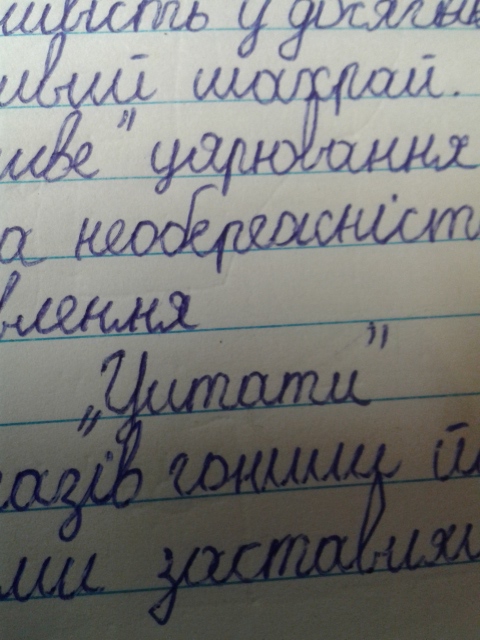 ивість у досягнен
ивий шахрай.
иве" царювання
а необережніст
влення
„Цитати"
казів гонишу й
ми заставля